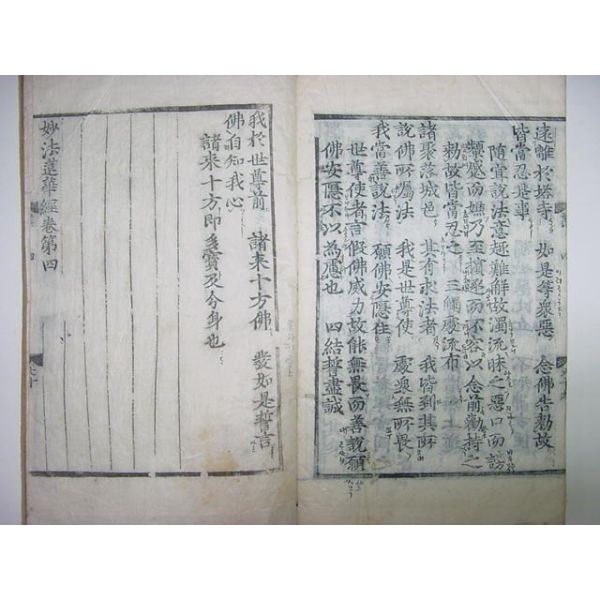 遠離於塔寺 如是等衆惡 念佛告勅故
皆當忍是事
隨宜說法意趣難解故濁流昧之惡口而謗
顰蹙而嫵乃至擯逐而不容以念前勸持之
勅故皆當忍之 三觸處流布
諸聚落城邑 其有求法者 我皆到其所
說佛所囑法 我是世尊使 處衆無所畏
我當善說法 願佛安隱住
世尊使者言假佛威力故能無畏而善說願
佛安隱不以為慮也 四結誓盡誠
我於世尊前 諸來十方佛 發如是誓言
佛自知我心
諸來十方即多寶及分身也
妙法蓮華經卷第四